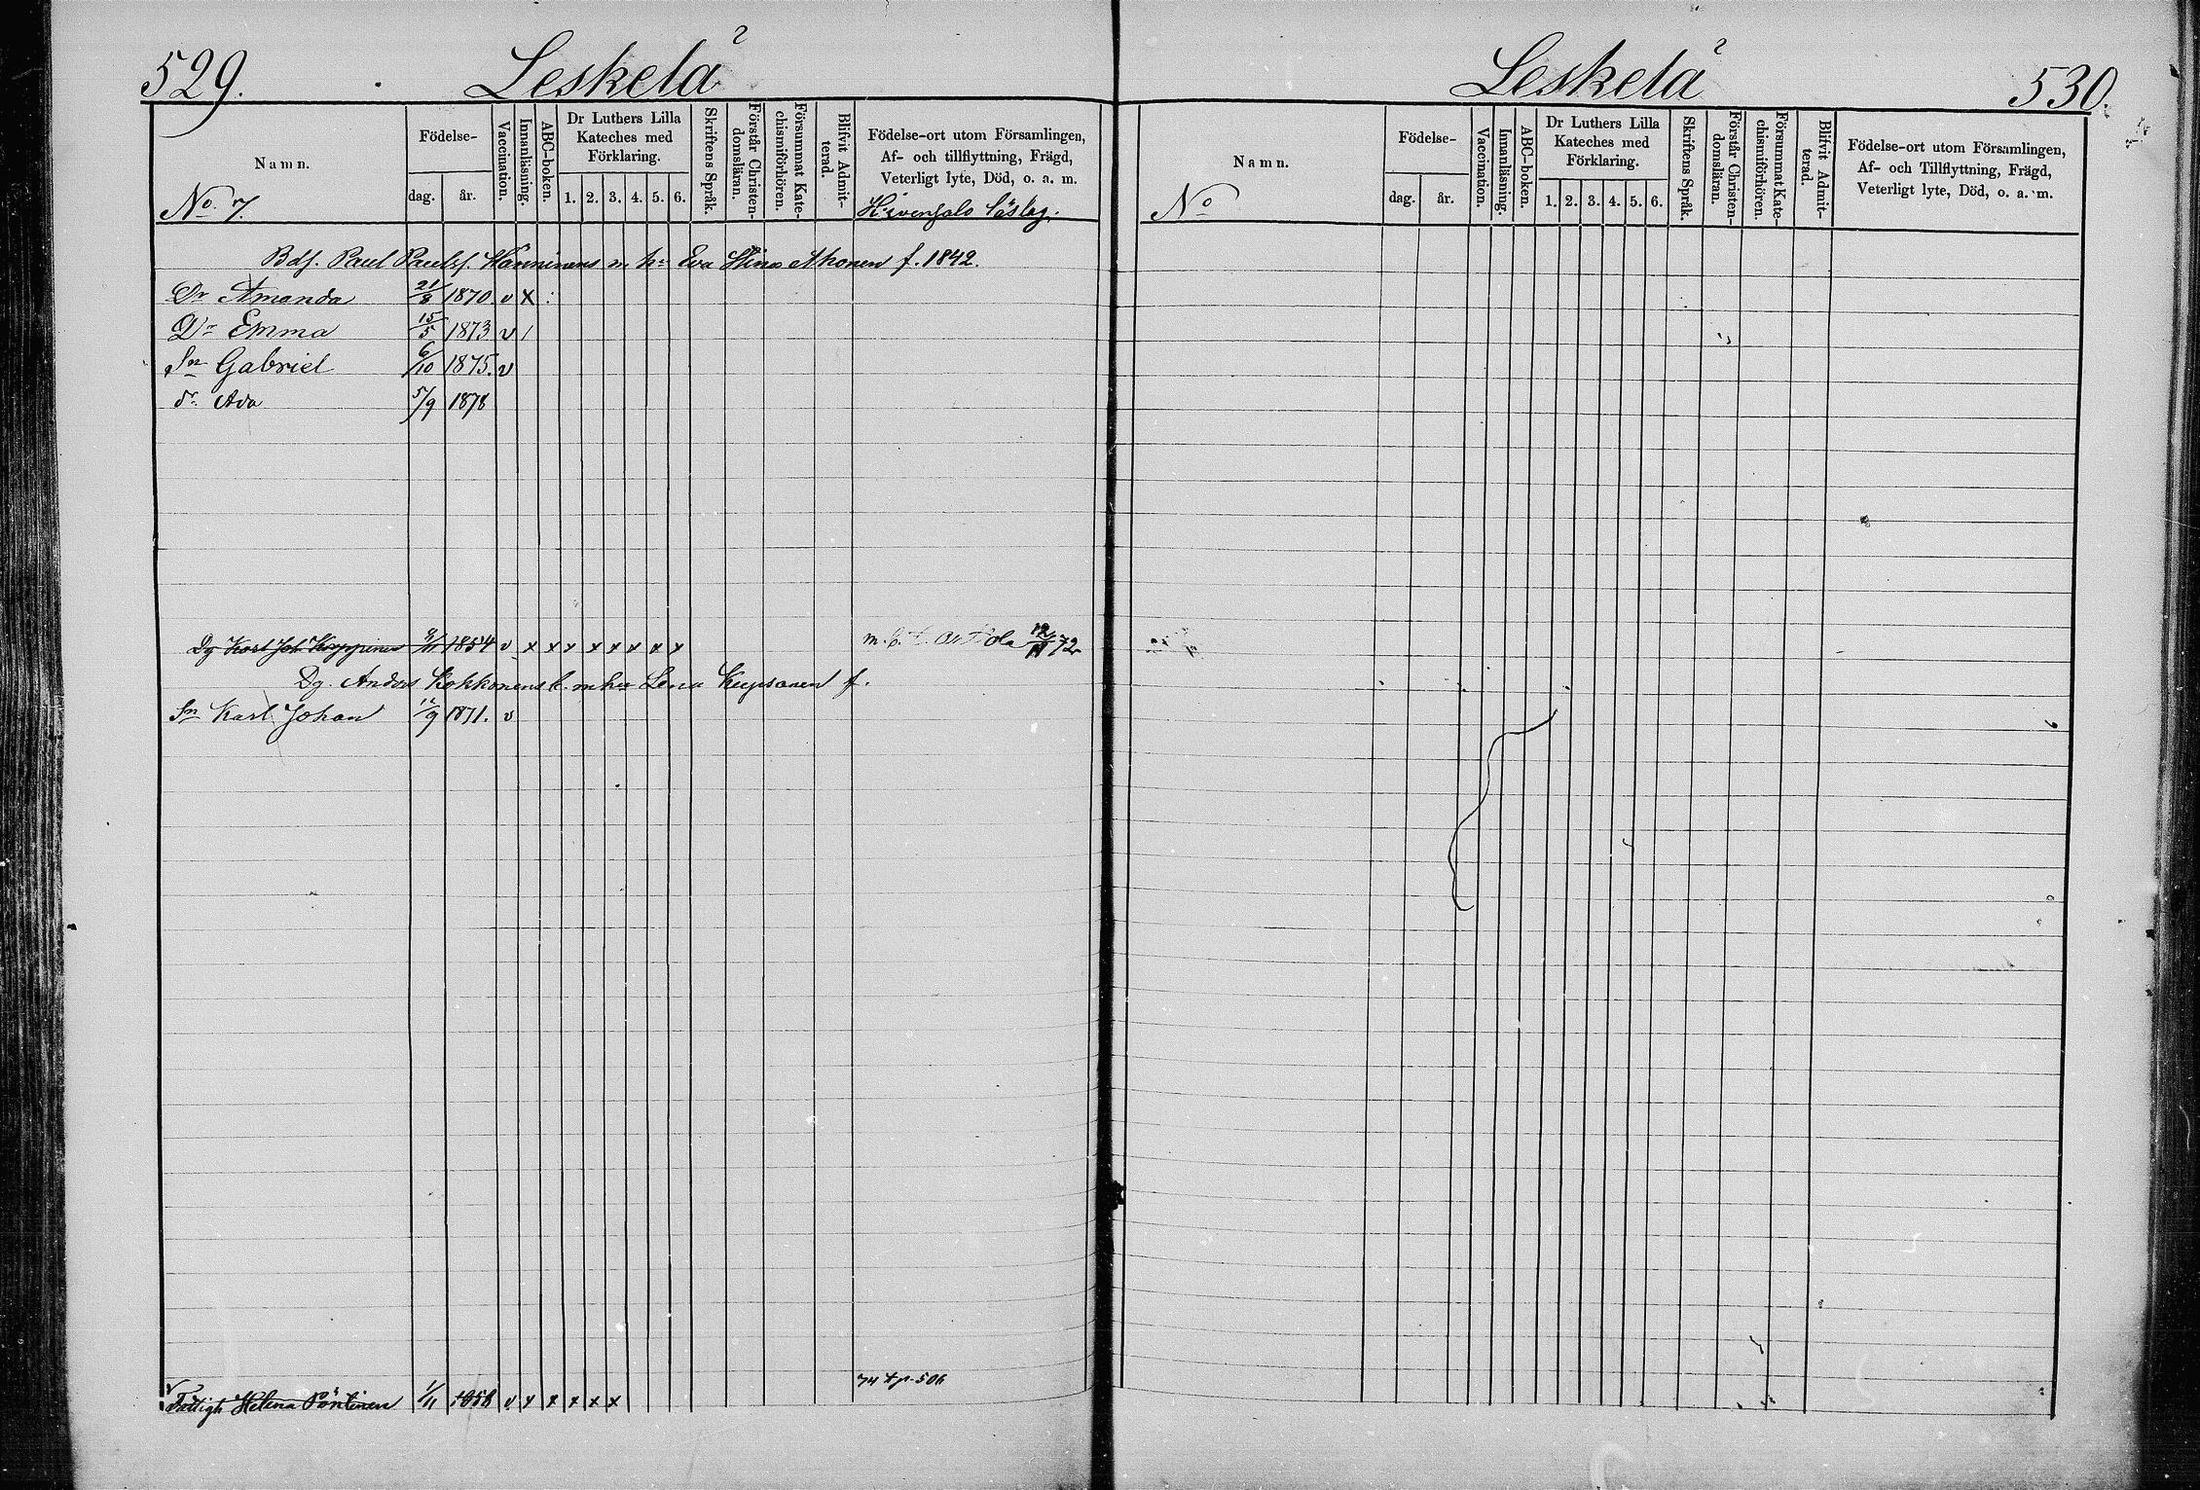 529. Leskelä
Namn.
No. 7.
Födelse-
dag. år.
Vaccination.
Innanläsning.
ABC-boken.
Dr Luthers Lilla
Kateches med
Förklaring.
1. 2. 3. 4. 5. 6.
Skriftens Språk.
Förstår Christen-
domsläran.
Försummat Kate-
chismiförhören.
Blifvit Admit-
terad.
Födelse-ort utom Församlingen,
Af- och tillflyttning, Frägd,
Veterligt lyte, Död, o. a. m.
Bdf. Paul Paulsf. Hänninens m. h. Eva Stina Ahonen f. 1842.
Dr Amanda 21/8 1870. v x
Dr Emma 15/5 1873 v /
Sn Gabriel 6/10 1875. v
dr. Ada 5/9 1878
Dg Karl Joh 1854 v x x x x x x x x 72
Dg. Anders Kokkonens Lena f.
Sn Karl Johan 9 1871. v
74 t p. 506
Fattigh Helena Pöntinen 1/11 1858 v x x x x x
Leskelä 530.
Namn.
No
Födelse-
dag. år.
Vaccination.
Innanläsning.
ABC-boken.
Dr Luthers Lilla
Kateches med
Förklaring.
1. 2. 3. 4. 5. 6.
Skriftens Språk.
Förstår Christen-
domsläran.
Försummat Kate-
chismiförhören.
Blifvit Admit-
terad.
Födelse-ort utom Församlingen,
Af- och Tillflyttning, Frägd,
Veterligt lyte, Död, o. a. m.